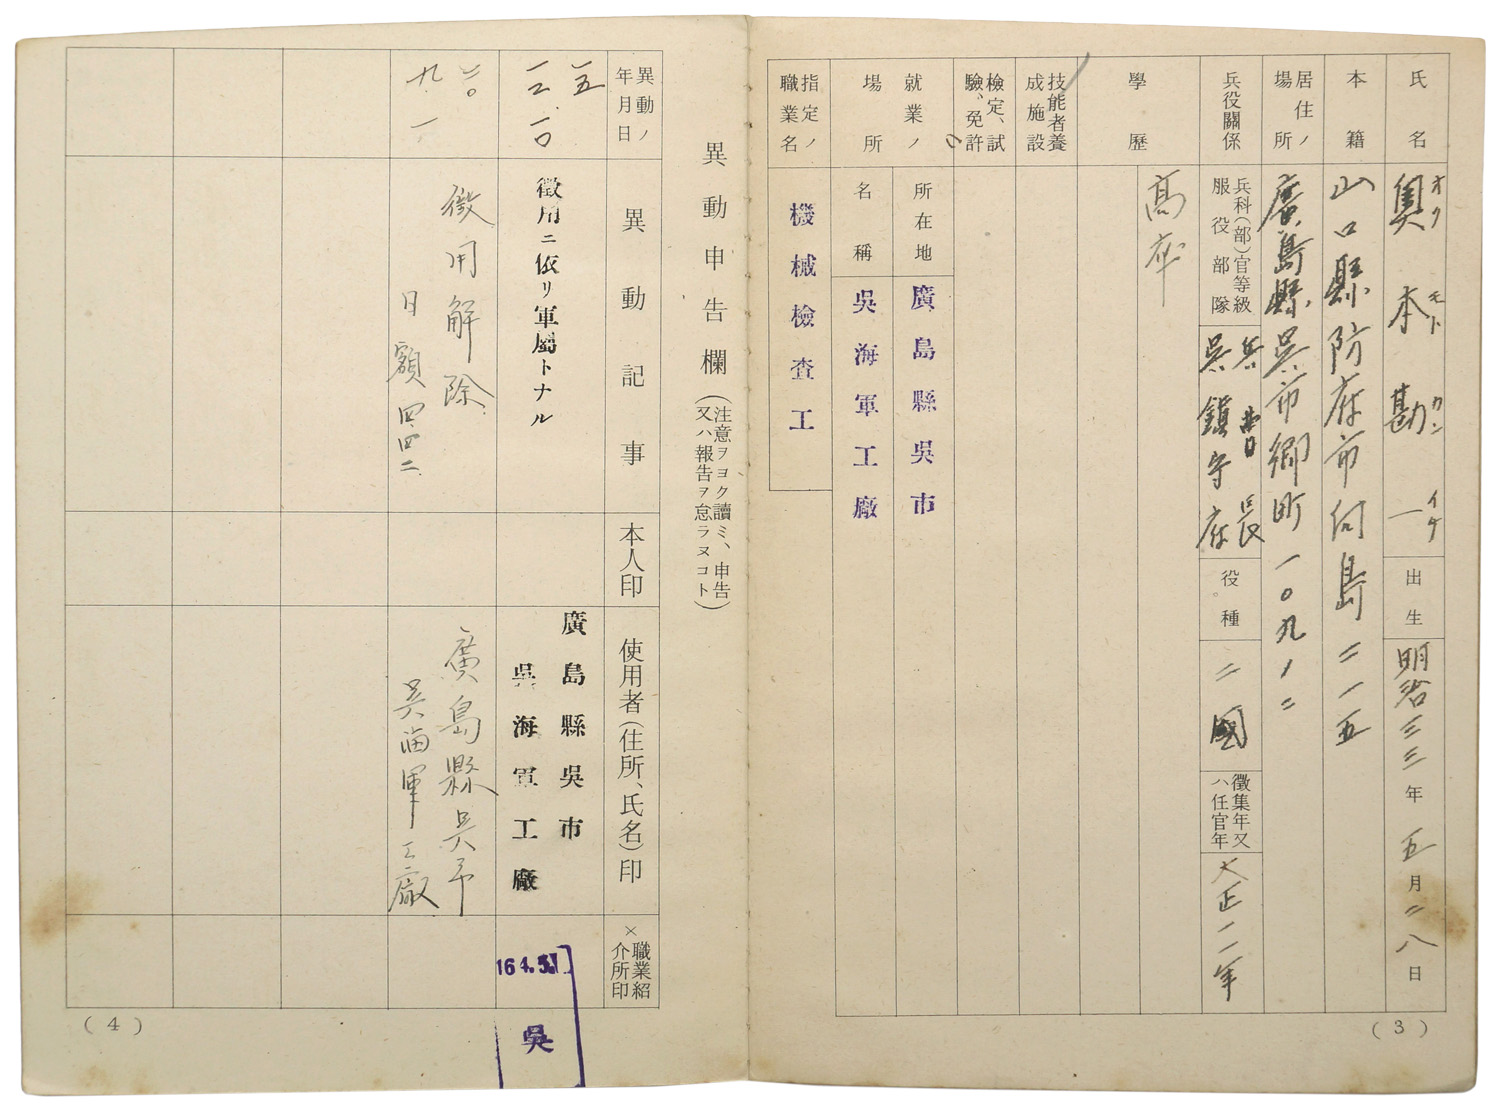 氏名
奧本勘一
オク モト カン イチ
出生
明治三三年五月二八日
本籍
山口縣防府市向島二一一五
居住ノ場所
廣島縣呉市郷町一〇九ノ二
兵役關係
兵科(部)官等級
服役部隊
兵曹長
呉鎮守府
役種
二國
徴集年又ハ任官年
大正一二年
學歷
高卒
技能者養成施設
檢定、試驗、免許
就業ノ場所
所在地
廣島縣吳市
名稱
吳海軍工廠
指定ノ職業名
機械檢査工
(3)
異動申告欄
(注意ヲヨク讀ミ、申告又ハ報告ヲ怠ラヌコト)
異動ノ年月日
異動記事
本人印
使用者(住所、氏名)印
×職業紹介所印
一五
一二.一〇
徴用ニ依リ軍屬トナル
廣島縣吳市
吳海軍工廠
16 4.
吳
二〇
九.一
徴用解除
日額四.四二
廣島縣呉市
呉海軍工廠
(4)